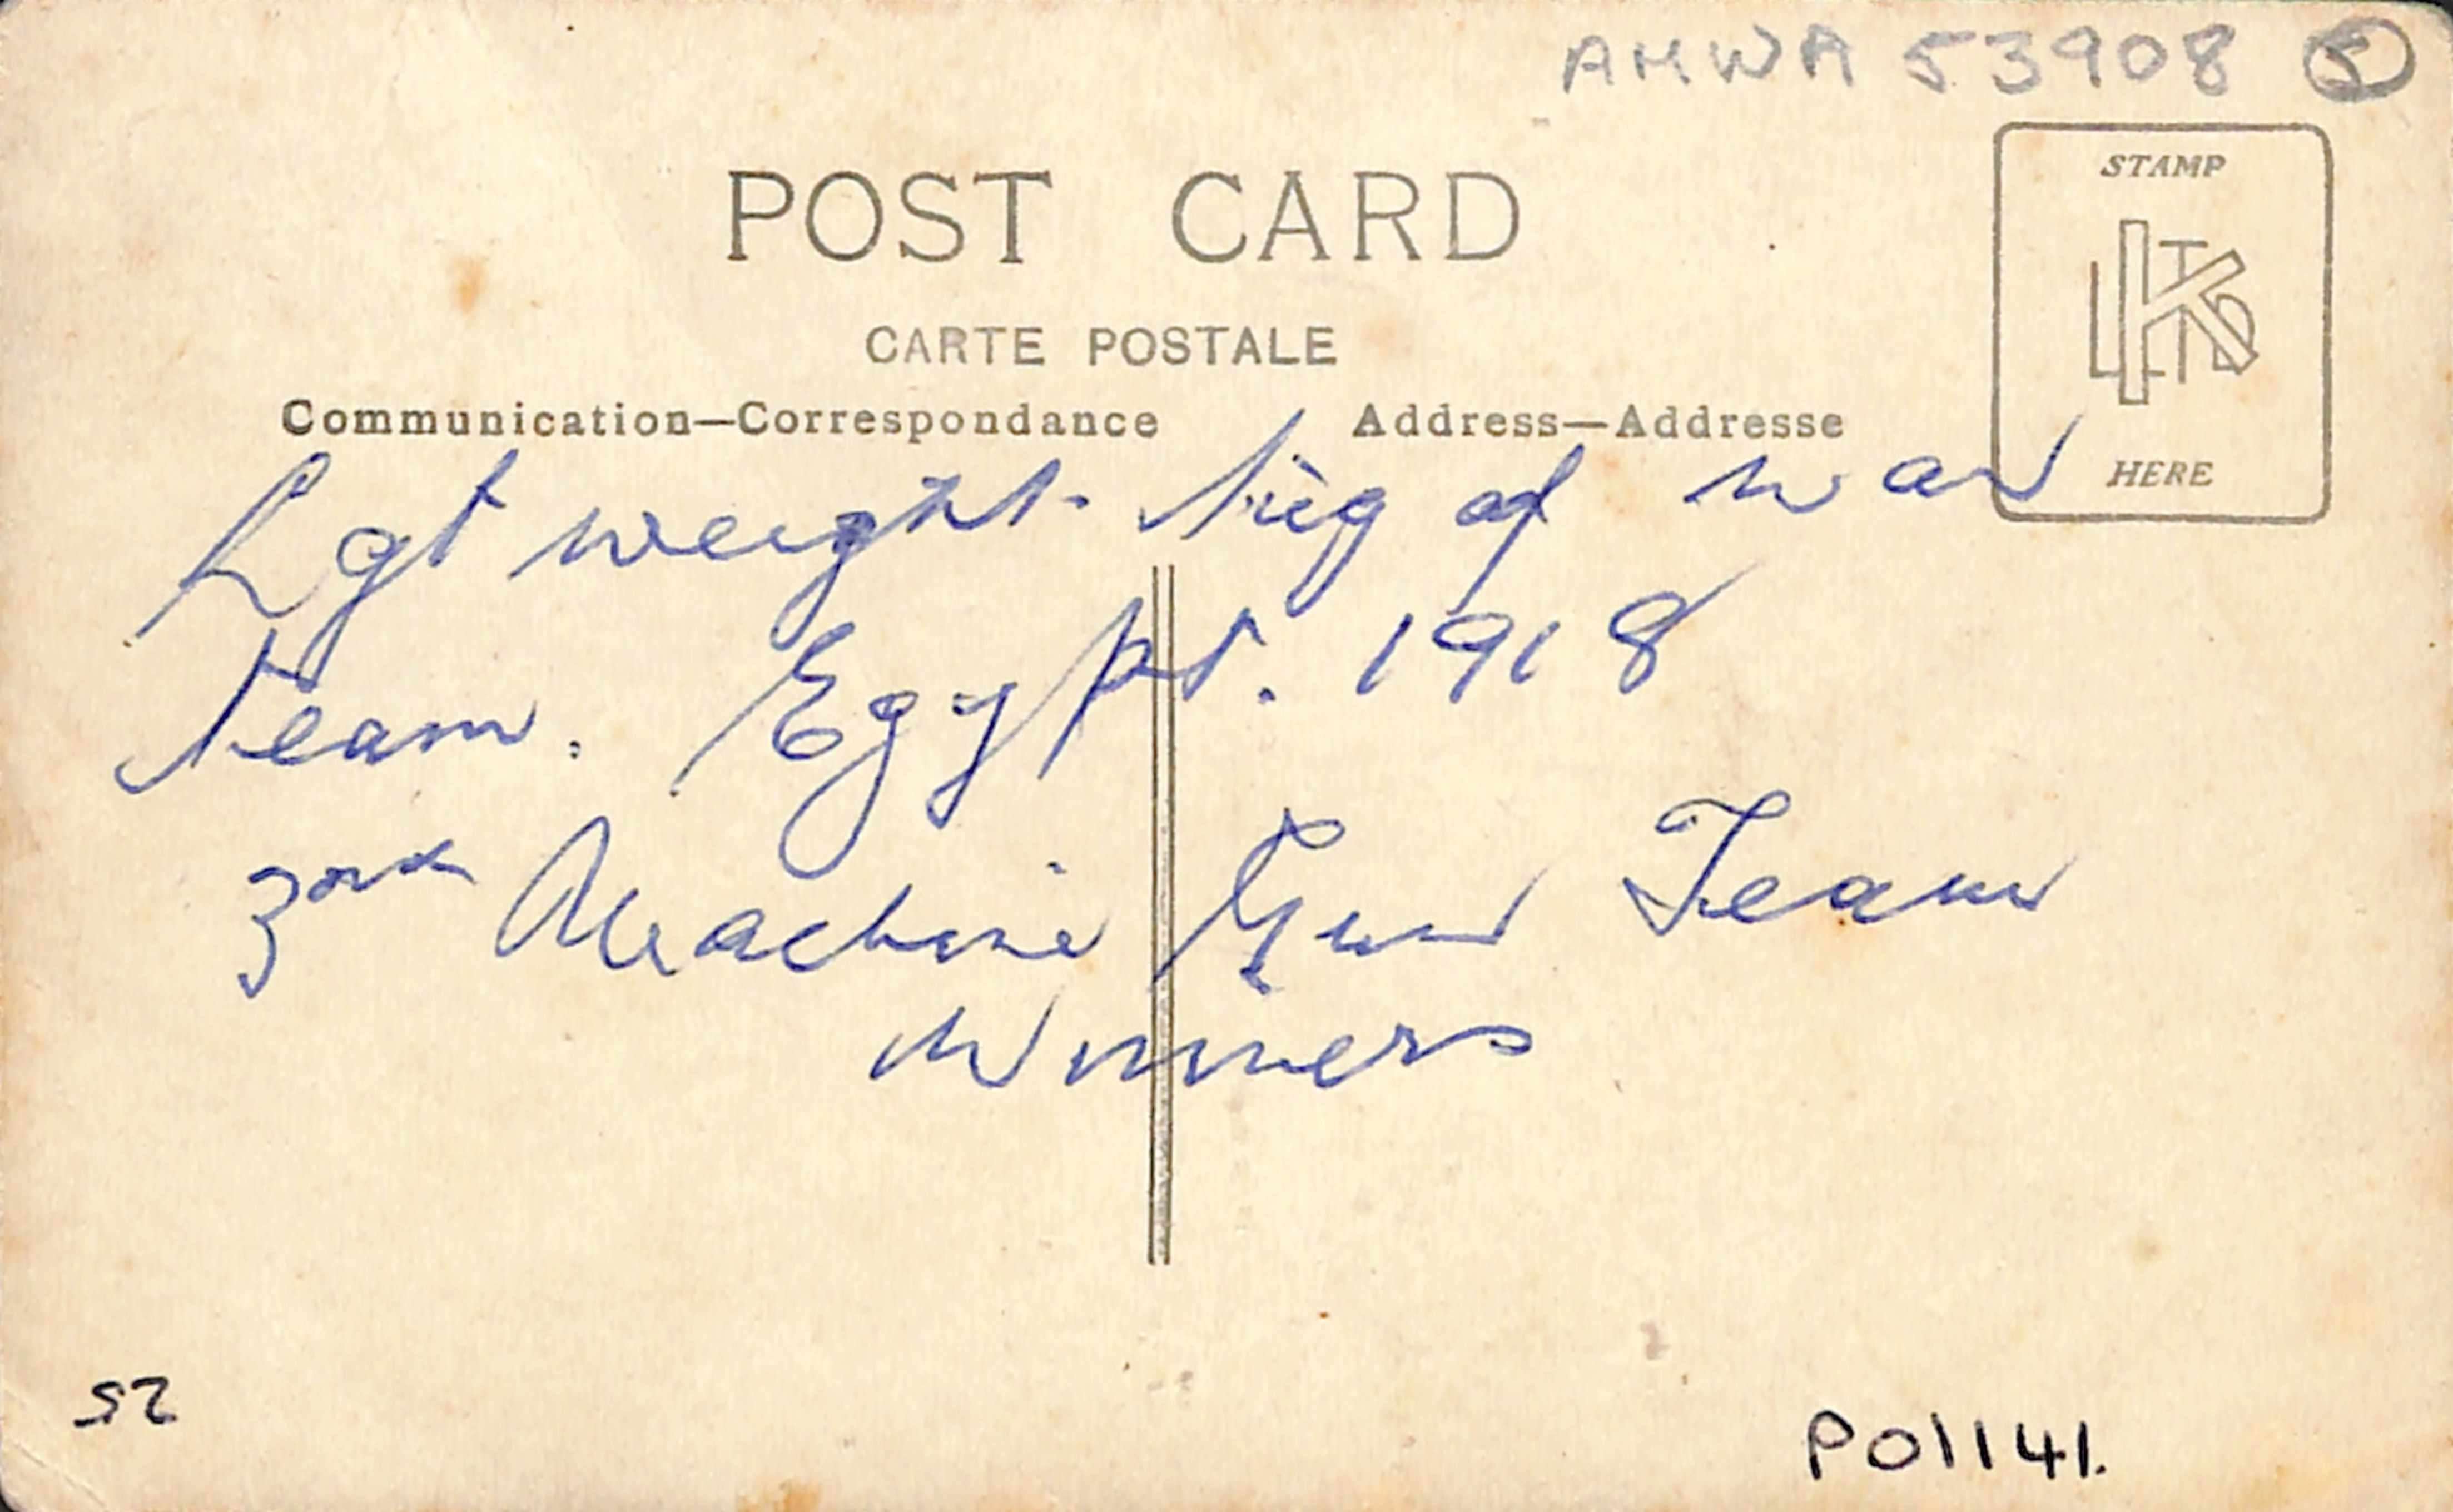 AMWA 53908 5
POST CARD
STAMP
K LTD
CARTE POSTALE
Communication—Correspondance
Address—Addresse
HERE
Lgt weight Tug of war
Team. Egypt. 1918
Machine Gun Team
Winners
52
P01141.